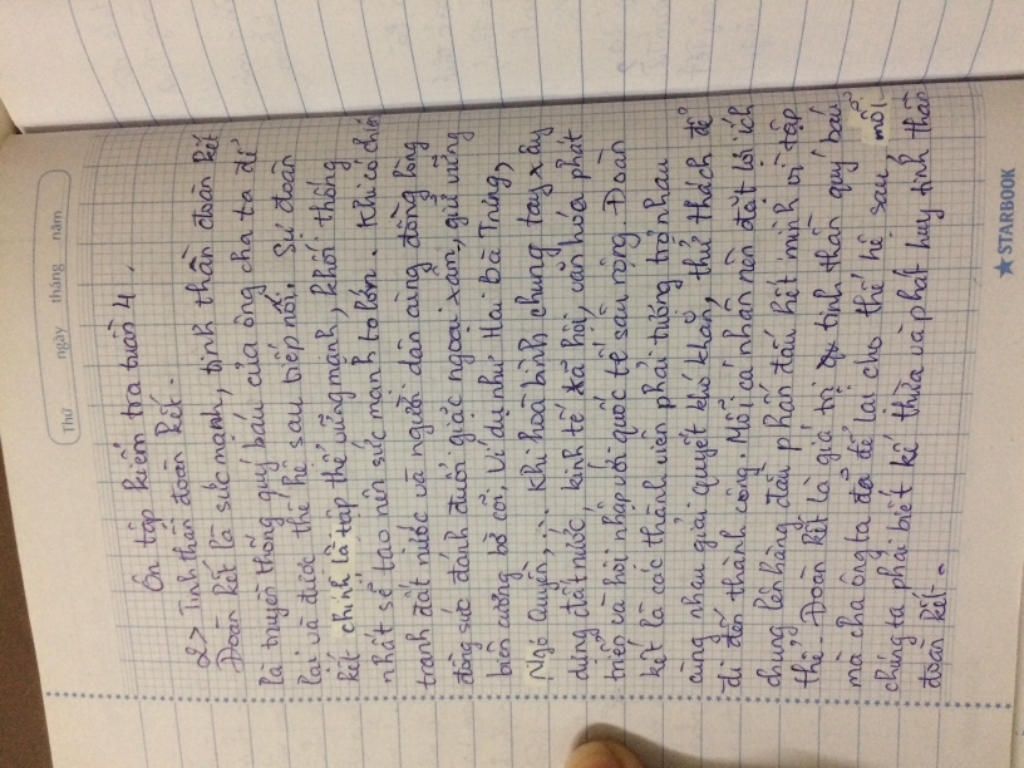 Thứ ngày tháng năm
Ôn tập kiểm tra tuần 4.
2> Tinh thần đoàn kết.
Đoàn kết là sức mạnh, tinh thần đoàn kết
là truyền thống quý báu của ông cha ta để
lại và được thế hệ sau tiếp nối. Sự đoàn
kết chính là tập thể vững mạnh, khối thống
nhất sẽ tạo nên sức mạnh to lớn. Khi có chiến
tranh đất nước và người dân cùng đồng lòng
đồng sức đánh đuổi giặc ngoại xâm, giữ vững
biên cương bờ cõi, ví dụ như Hai Bà Trưng,
Ngô Quyền,... Khi hoà bình chung tay xây
dựng đất nước, kinh tế xã hội, văn hóa phát
triển và hội nhập với quốc tế sâu rộng. Đoàn
kết là các thành viên phải tương trợ nhau
cùng nhau giải quyết khó khăn, thử thách để
đi đến thành công. Mỗi cá nhân nên đặt lợi ích
chung lên hàng đầu phấn đấu hết mình vì tập
thể. Đoàn kết là giá trị tinh thần quý báu
mà cha ông ta đã để lại cho thế hệ sau mỗi
chúng ta phải biết kế thừa và phát huy tinh thần
đoàn kết.
★ STARBOOK